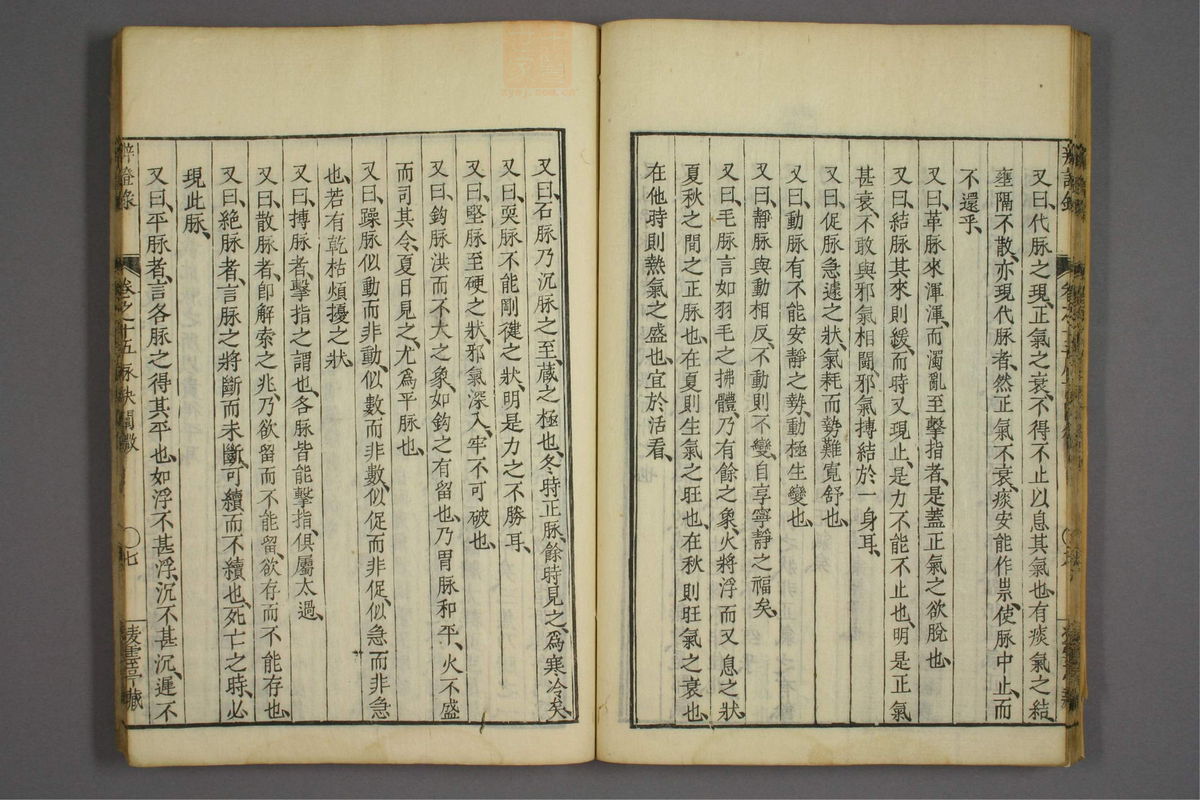 又曰代脉之現、正氣之衰、不得不止以息其氣也、有痰氣之結
壅隔不散、亦現代脉者、然正氣不衰、痰安能作祟、使脉中止、而
不還乎、
又曰革脉來渾渾、而濁亂至擊指者、是蓋正氣之欲脫也、
又曰結脉其來則緩、而時又現止、是力不能不止也、明是正氣
甚衰、不敢與邪氣相鬪、邪氣搏結於一身耳、
又曰促脉急遽之狀、氣耗而勢難寬舒也、
又曰動脉有不能安靜之勢、動極生變也、
又曰靜脉與動相反、不動則不變、自享寧靜之福矣、
又曰毛脉言如羽毛之拂體、乃有餘之象、火將浮而又息之狀、
夏秋之間之正脉也、在夏則生氣之旺也、在秋則旺氣之衰也、
在他時則熱氣之盛也、宜於活看、
又曰石脉乃沉脉之至、藏之極也、冬時正脉、餘時見之、為寒冷矣、
又曰耎脉不能剛健之狀、明是力之不勝耳、
又曰堅脉至硬之狀、邪氣深入、牢不可破也、
又曰鈎脉洪而不大之象、如鈎之有留也、乃胃脉和平、火不盛
而司其令、夏日見之、尤為平脉也、
又曰躁脉似動而非動、似數而非數、似促而非促、似急而非急
也、若有乾枯煩擾之狀、
又曰搏脉者、擊指之謂也、各脉皆能擊指、俱屬太過、
又曰散脉者、卽解索之兆、乃欲留而不能留、欲存而不能存也、
又曰絕脉者、言脉之將斷而未斷、可續而不續也、死亡之時、必
現此脉、
又曰平脉者、言各脉之得其平也、如浮不甚浮、沉不甚沉、遲不
辨證錄
卷之十五脉訣闡微
七